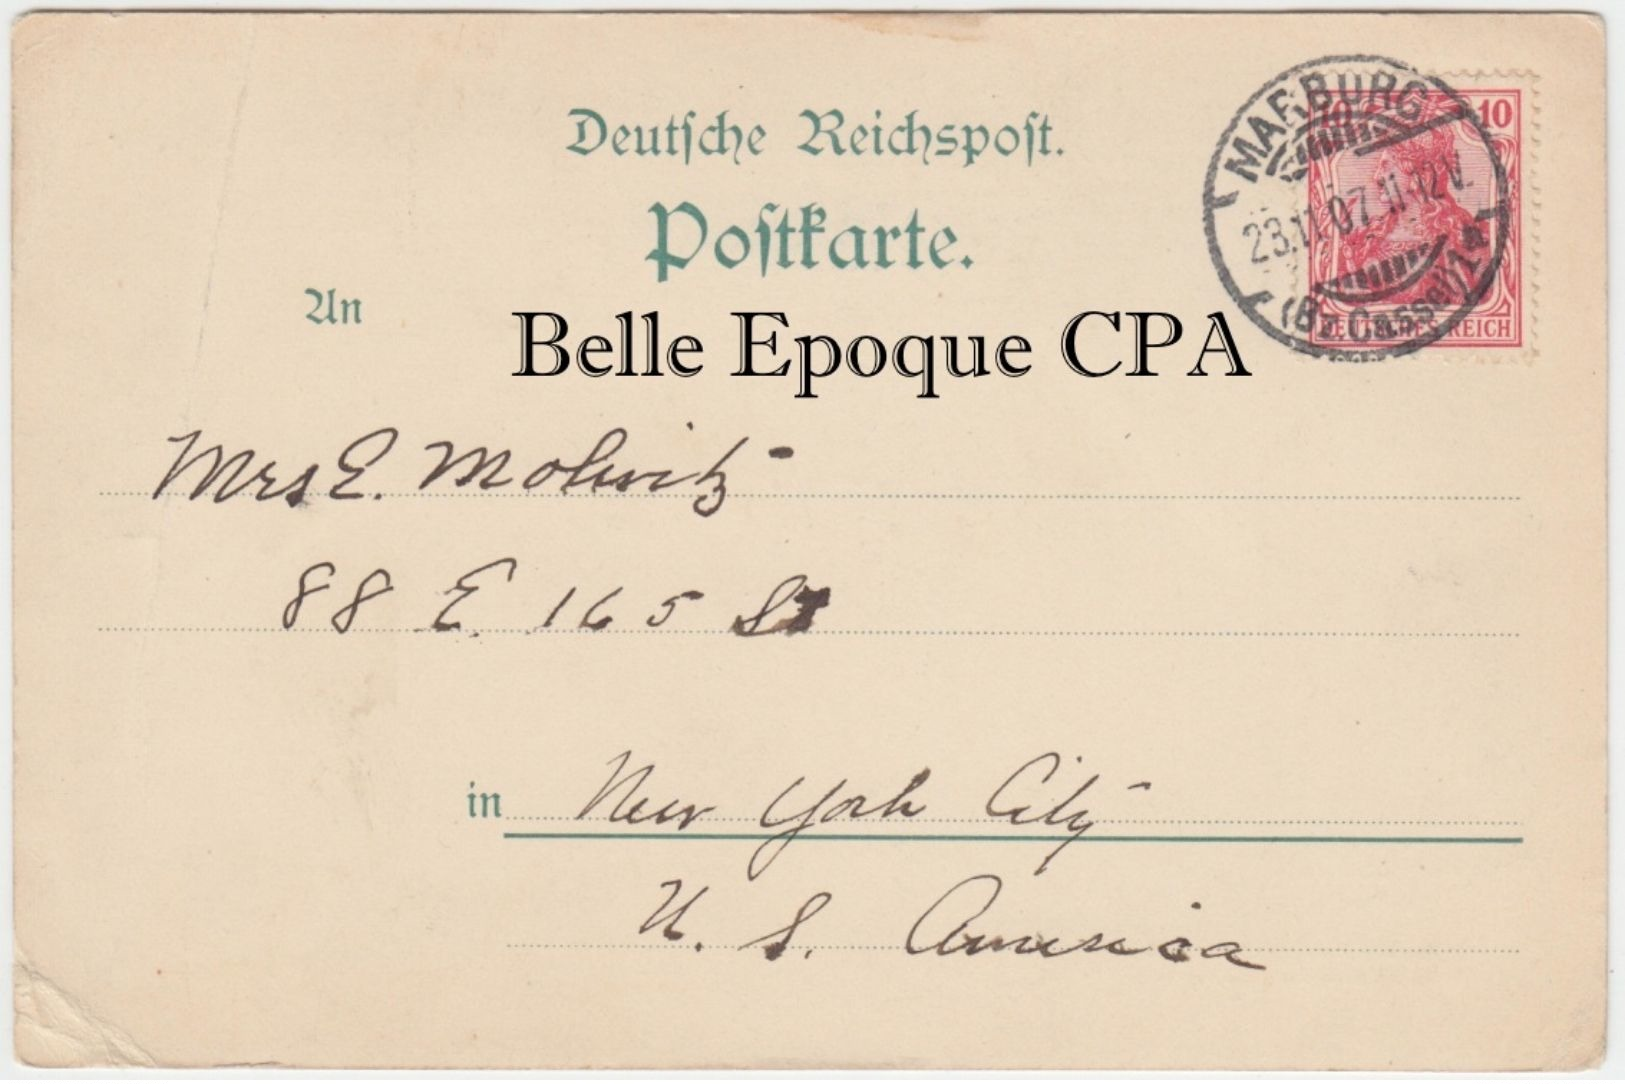 Deutsche Reichspost.
Postkarte.
MARBURG
10 10
23.11.07. 11-12V.
(Bz. Cassel) 1 a
DEUTSCHES REICH
An
Belle Epoque CPA
Mrs E. Molwitz
88 E. 165 St
in New York City
U. S. America